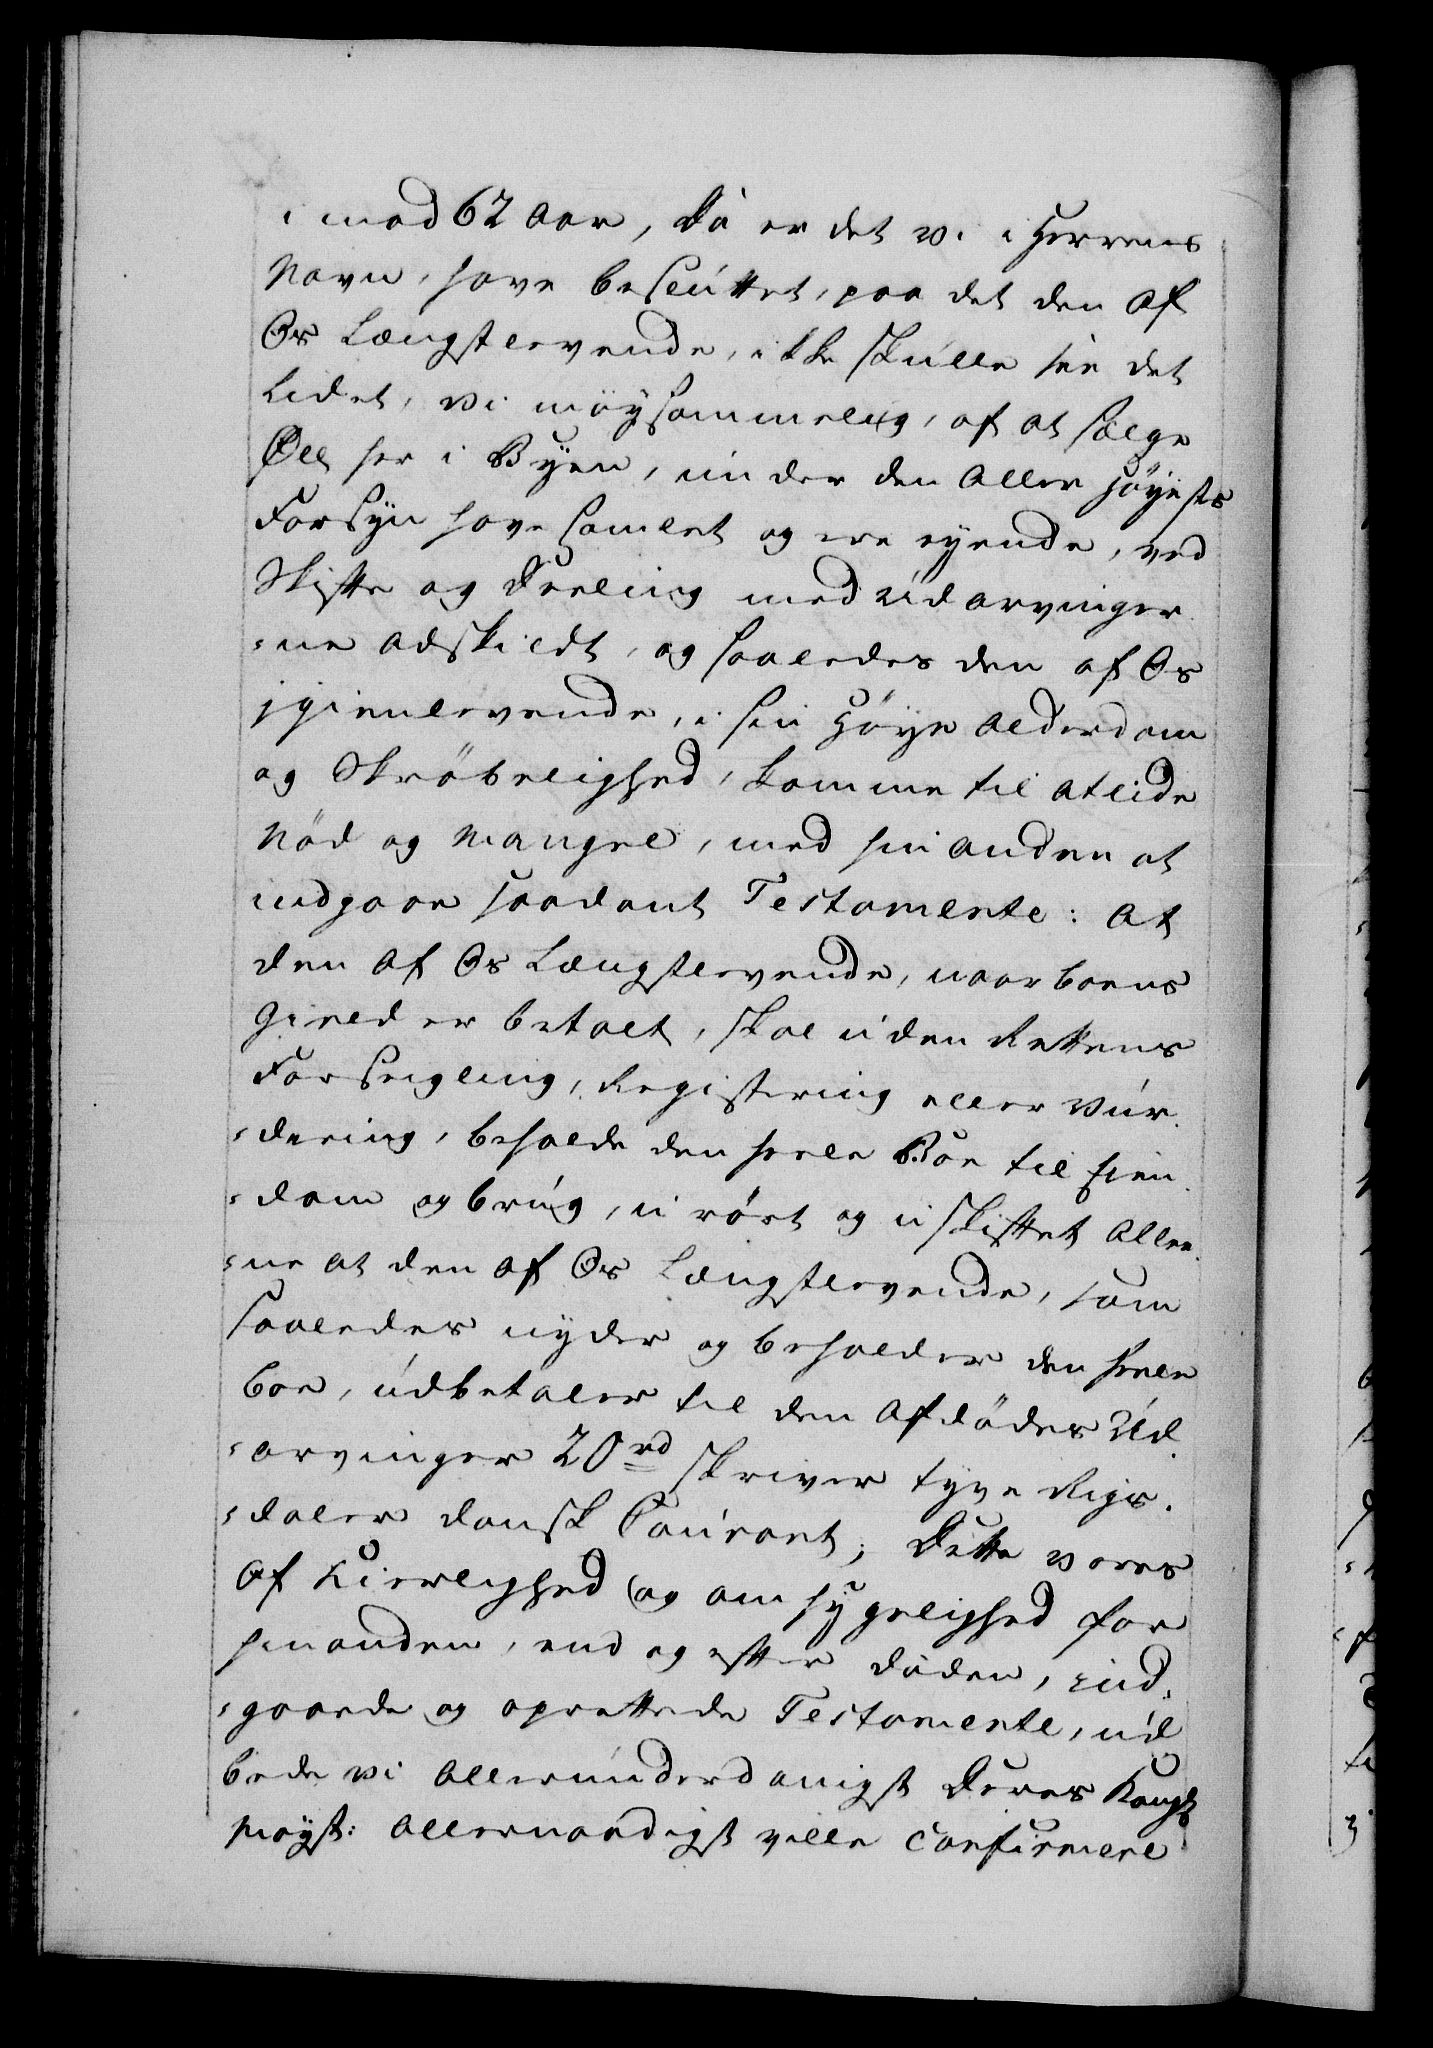 i mod 62 Aar, Da er det vi i Herrens
Navn, have besluttet, paa det den af
Os Længstlevende, ikke skulle see det
Lidet, vi møysommelig, af at sælge
Øll her i Byen, under den Aller Høyeste
Forsyn have samlet og ere eyende, ved
Skifte og Deeling med Udarvinger
-ne adskildt, og saaledes den af Os
igienlevende, i sin Høye Alderdom
og Skrøbelighed, komme til at lide
Nød og Mangel, med hinanden at
indgaae saadant Testamente: At
den af Os Længstlevende, naar boens
Gield er betalt, skal uden Rettens
Forseigling, Registering eller Vur-
-dering, beholde den heele Boe til Eien-
-dom og brug, u rørt og u skiftet Alle-
-ne at den af Os Længstlevende, som
saaledes nyder og beholder den heele
boe, udbetaler til den Afdødes Ud-
-arvinger 20 rd skriver tyve Rigs-
-daler dansk Courant; Dette vores
af Kierlighed og omhyggelighed for
hinanden, end og efter døden, ind-
-gaaede og oprettede Testamente, ud
bede vi Allerunderdanigst Deres Kongl
Mayst: Allernaadigst ville Confirmere